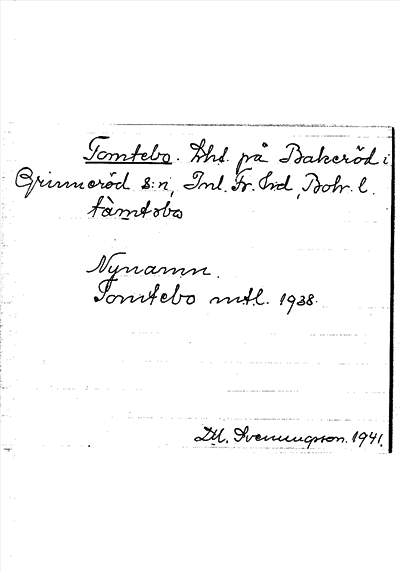 Tomtebo. Lht. på Bakeröd i
Grinneröd s:n, Inl. Fr. hd, Boh. l.
tàmtəbo
Nynamn.
Tomtebo mtl. 1938.
D.M. Svenungsson. 1941.